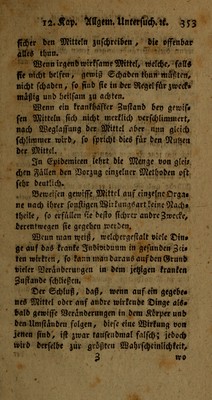 12. Kap. Allgem. Untersuch. ꝛc. 353
ſicher den Mitteln zuſchreiben, die offenbar
alles thun.
Wenn irgend wirkſame Mittel, welche, falls
ſie nicht helfen, gewiß Schaden thun müßten,
nicht ſchaden, ſo ſind ſie in der Regel für zweck-
mäßig und heilſam zu achten.
Wenn ein krankhafter Zuſtand bey gewiſ-
ſen Mitteln ſich nicht merklich verſchlimmert,
nach Weglaſſung der Mittel aber nun gleich
ſchlimmer wird, ſo ſpricht dies für den Nutzen
der Mittel.
In Epidemieen lehrt die Menge von glei-
chen Fällen den Vorzug einzelner Methoden oft
ſehr deutlich.
Beweiſen gewiſſe Mittel auf einzelne Orga-
ne nach ihrer ſonſtigen Wirkungsart keine Nach-
theile, ſo erfüllen ſie deſto ſichrer andre Zwecke,
derentwegen ſie gegeben werden.
Weun man weiß, welchergeſtalt viele Din-
ge auf das kranke Individuum in geſunden Zei-
ten wirkten, ſo kann man daraus auf den Grund
vieler Veränderungen in dem jetzigen kranken
Zuſtande ſchließen.
Der Schluß, daß, wenn auf ein gegebe-
nes Mittel oder auf andre wirkende Dinge als-
bald gewiſſe Veränderungen in dem Körper und
den Umſtänden folgen, dieſe eine Wirkung von
jenen ſind, iſt zwar tauſendmal falſch; jedoch
wird derſelbe zur größten Wahrſcheinlichkeit,
3 wo